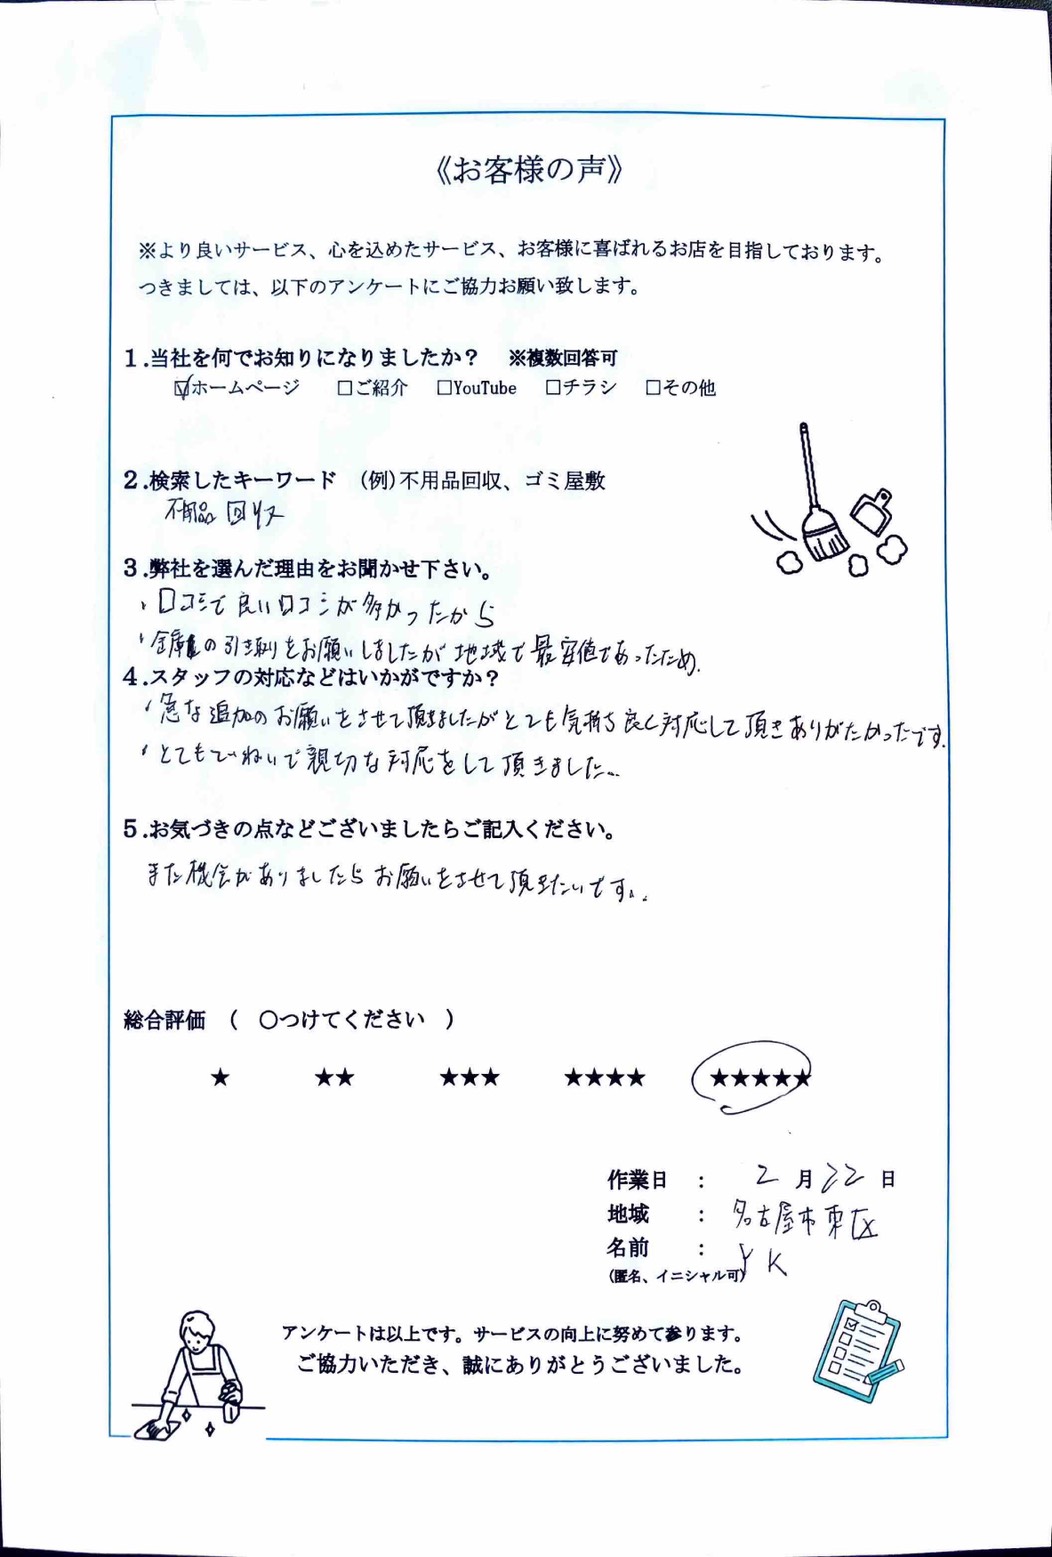 《お客様の声》
※より良いサービス、心を込めたサービス、お客様に喜ばれるお店を目指しております。
つきましては、以下のアンケートにご協力お願い致します。
1.当社を何でお知りになりましたか？ ※複数回答可
☑ホームページ □ご紹介 □YouTube □チラシ □その他
2.検索したキーワード （例）不用品回収、ゴミ屋敷
不用品回収
3.弊社を選んだ理由をお聞かせ下さい。
・口コミで良い口コミが多かったから
・金庫の引き取りをお願いしましたが地域で最安値であったため.
4.スタッフの対応などはいかがですか？
・急な追加のお願いをさせて頂きましたがとても気持ち良く対応して頂きありがたかったです.
・とてもていねいで親切な対応をして頂きました..
5.お気づきの点などございましたらご記入ください。
また機会がありましたらお願いをさせて頂きたいです..
総合評価 （ ○つけてください ）
★ ★★ ★★★ ★★★★ ★★★★★
作業日 ： 2月22日
地域 ： 名古屋市東区
名前 ： YK
（匿名、イニシャル可）
アンケートは以上です。サービスの向上に努めて参ります。
ご協力いただき、誠にありがとうございました。